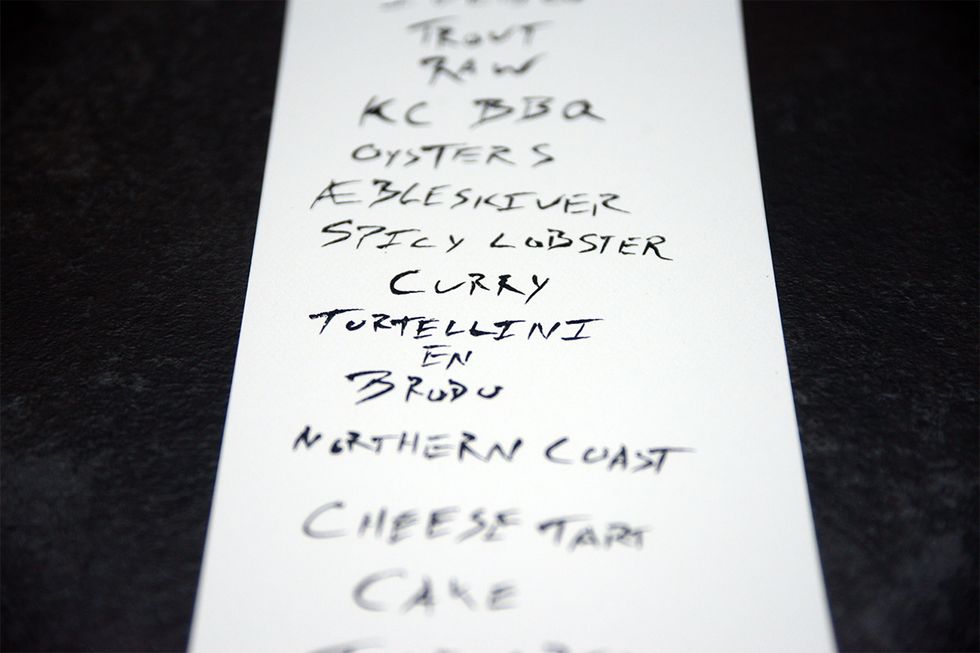 TROUT
RAW
KC BBQ
OYSTERS
ÆBLESKIVER
SPICY LOBSTER
CURRY
TORTELLINI
EN
BRODO
NORTHERN COAST
CHEESE TART
CAKE